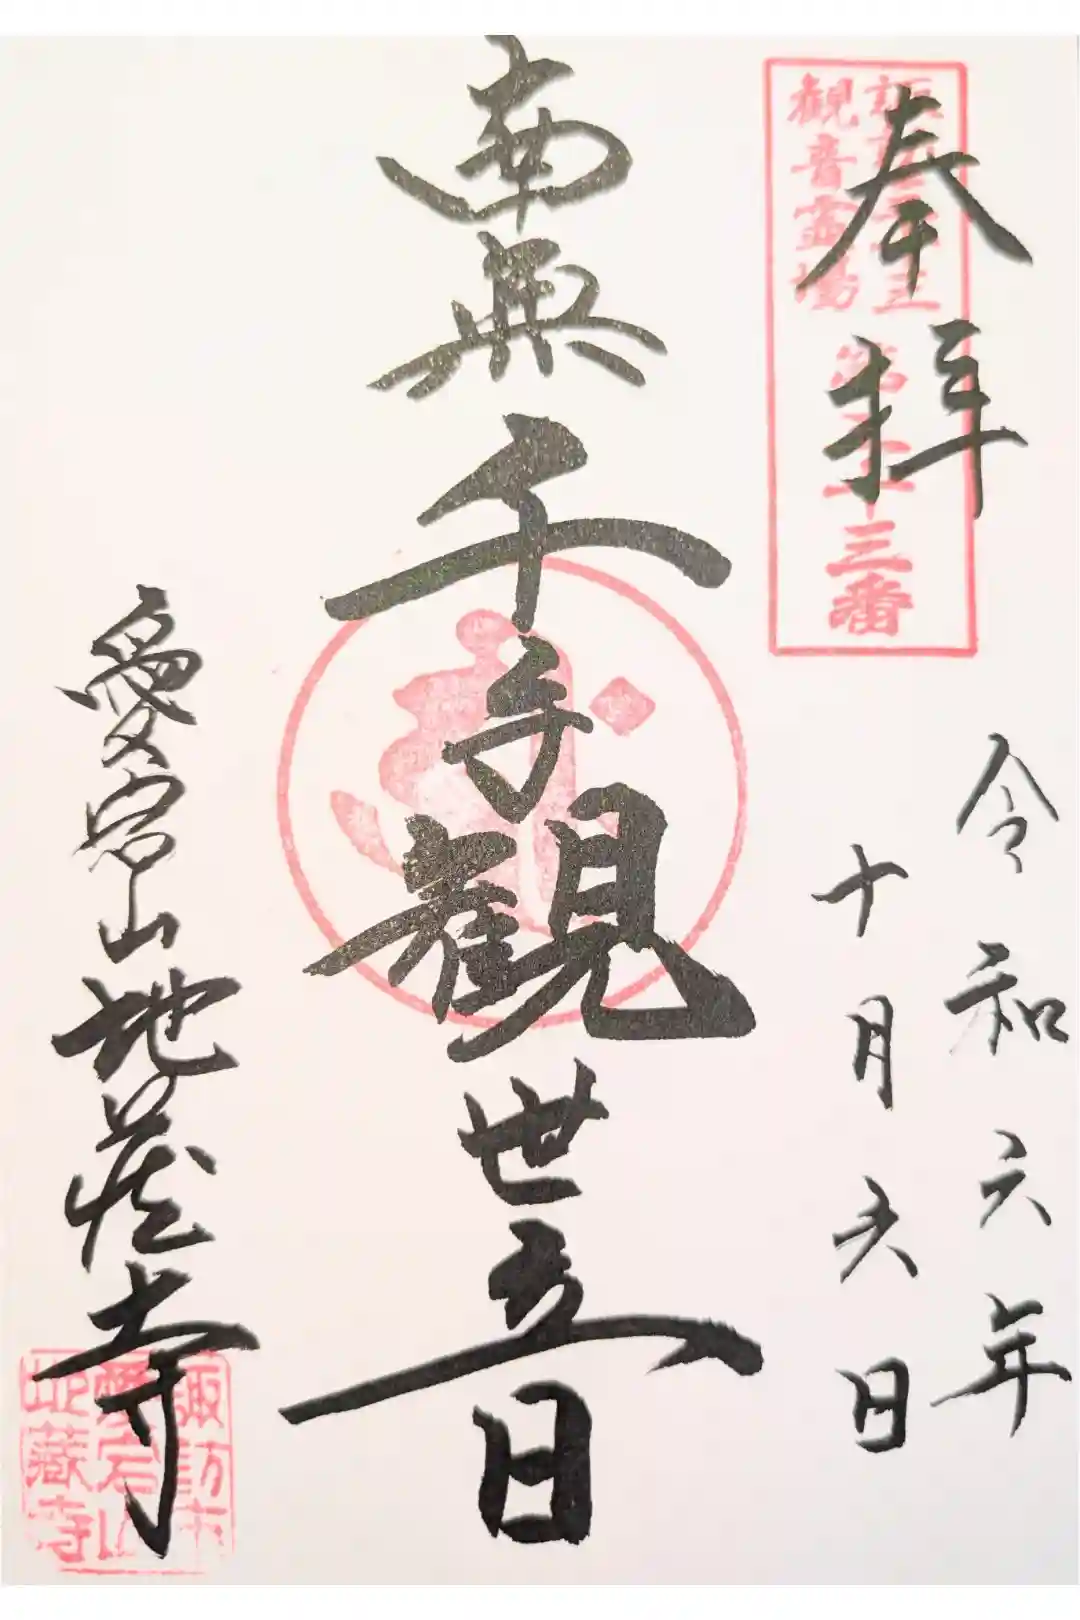 奉拝
観音霊場
令和六年
十月六日
南無千手観世音
愛宕山地蔵寺
諏訪市
愛宕山
地蔵寺